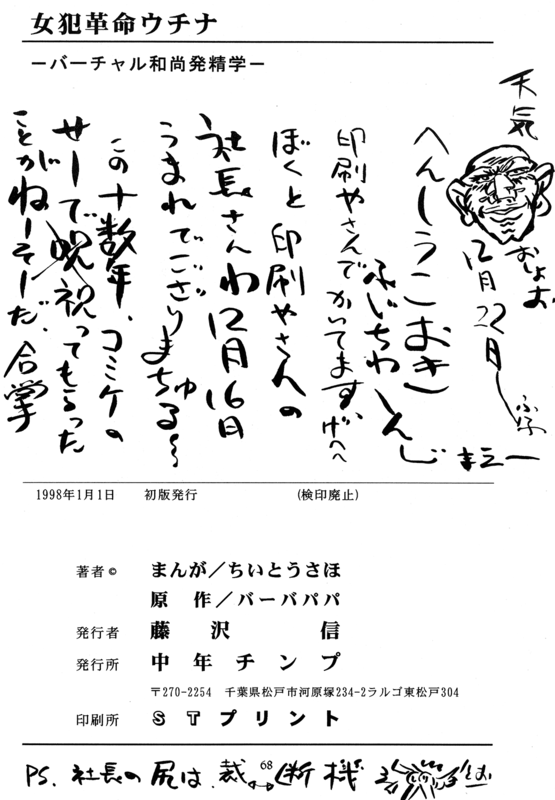 女犯革命ウチナ
－バーチャル和尚発精学－
天気
12月22日
へんしうこおき
ふじちわしんじ
印刷やさんでかいてます、げへへ
ぼくと印刷やさんの
社長さんわ12月16日
うまれでござりまちゅる〜
この十数年、コミケの
せーで祝ってもらった
ことがねーそーだ、合掌
1998年1月1日 初版発行 (検印廃止)
著者© まんが／ちいとうさほ
原 作／バーバパパ
発行者 藤沢 信
発行所 中年チンプ
〒270-2254 千葉県松戸市河原塚234-2ラルゴ東松戸304
印刷所 STプリント
68
PS. 社長の尻は、裁断機